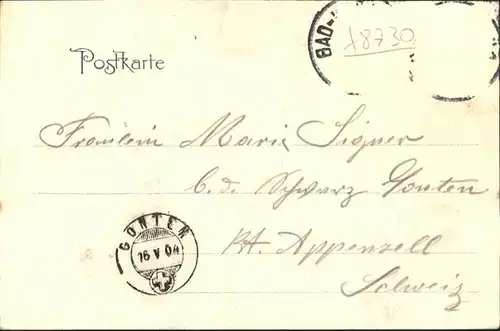 Postkarte
BAD-
18730
Fräulein Marie Signer
b. d. Schwarz Gonten
Kt. Appenzell
Schweiz
GONTEN
16 V 04